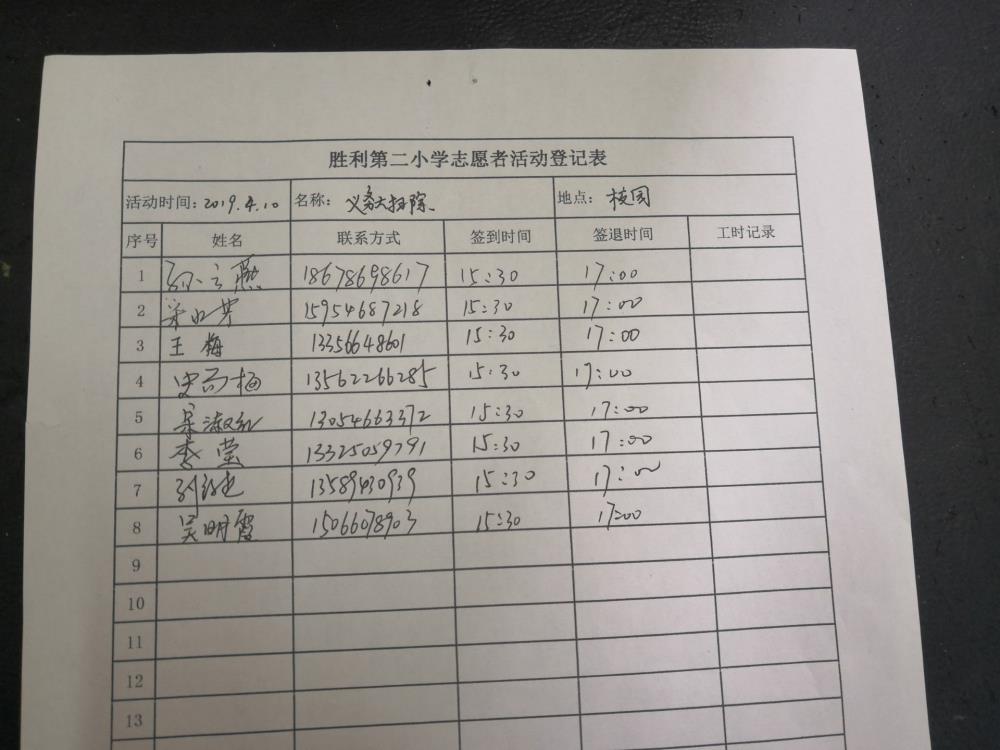 胜利第二小学志愿者活动登记表
活动时间:2019.4.10 名称: 义务大扫除 地点: 校园
序号 姓名 联系方式 签到时间 签退时间 工时记录
1 孙云燕 18678698617 15:30 17:00
2 15954687218 15:30 17:00
3 王梅 13356648601 15:30 17:00
4 史而梅 13562266285 15:30 17:00
5 吴淑红 13054663372 15:30 17:00
6 李莹 13325059791 15:30 17:00
7 13589430939 15:30 17:00
8 吴明霞 15066078903 15:30 17:00
9
10
11
12
13